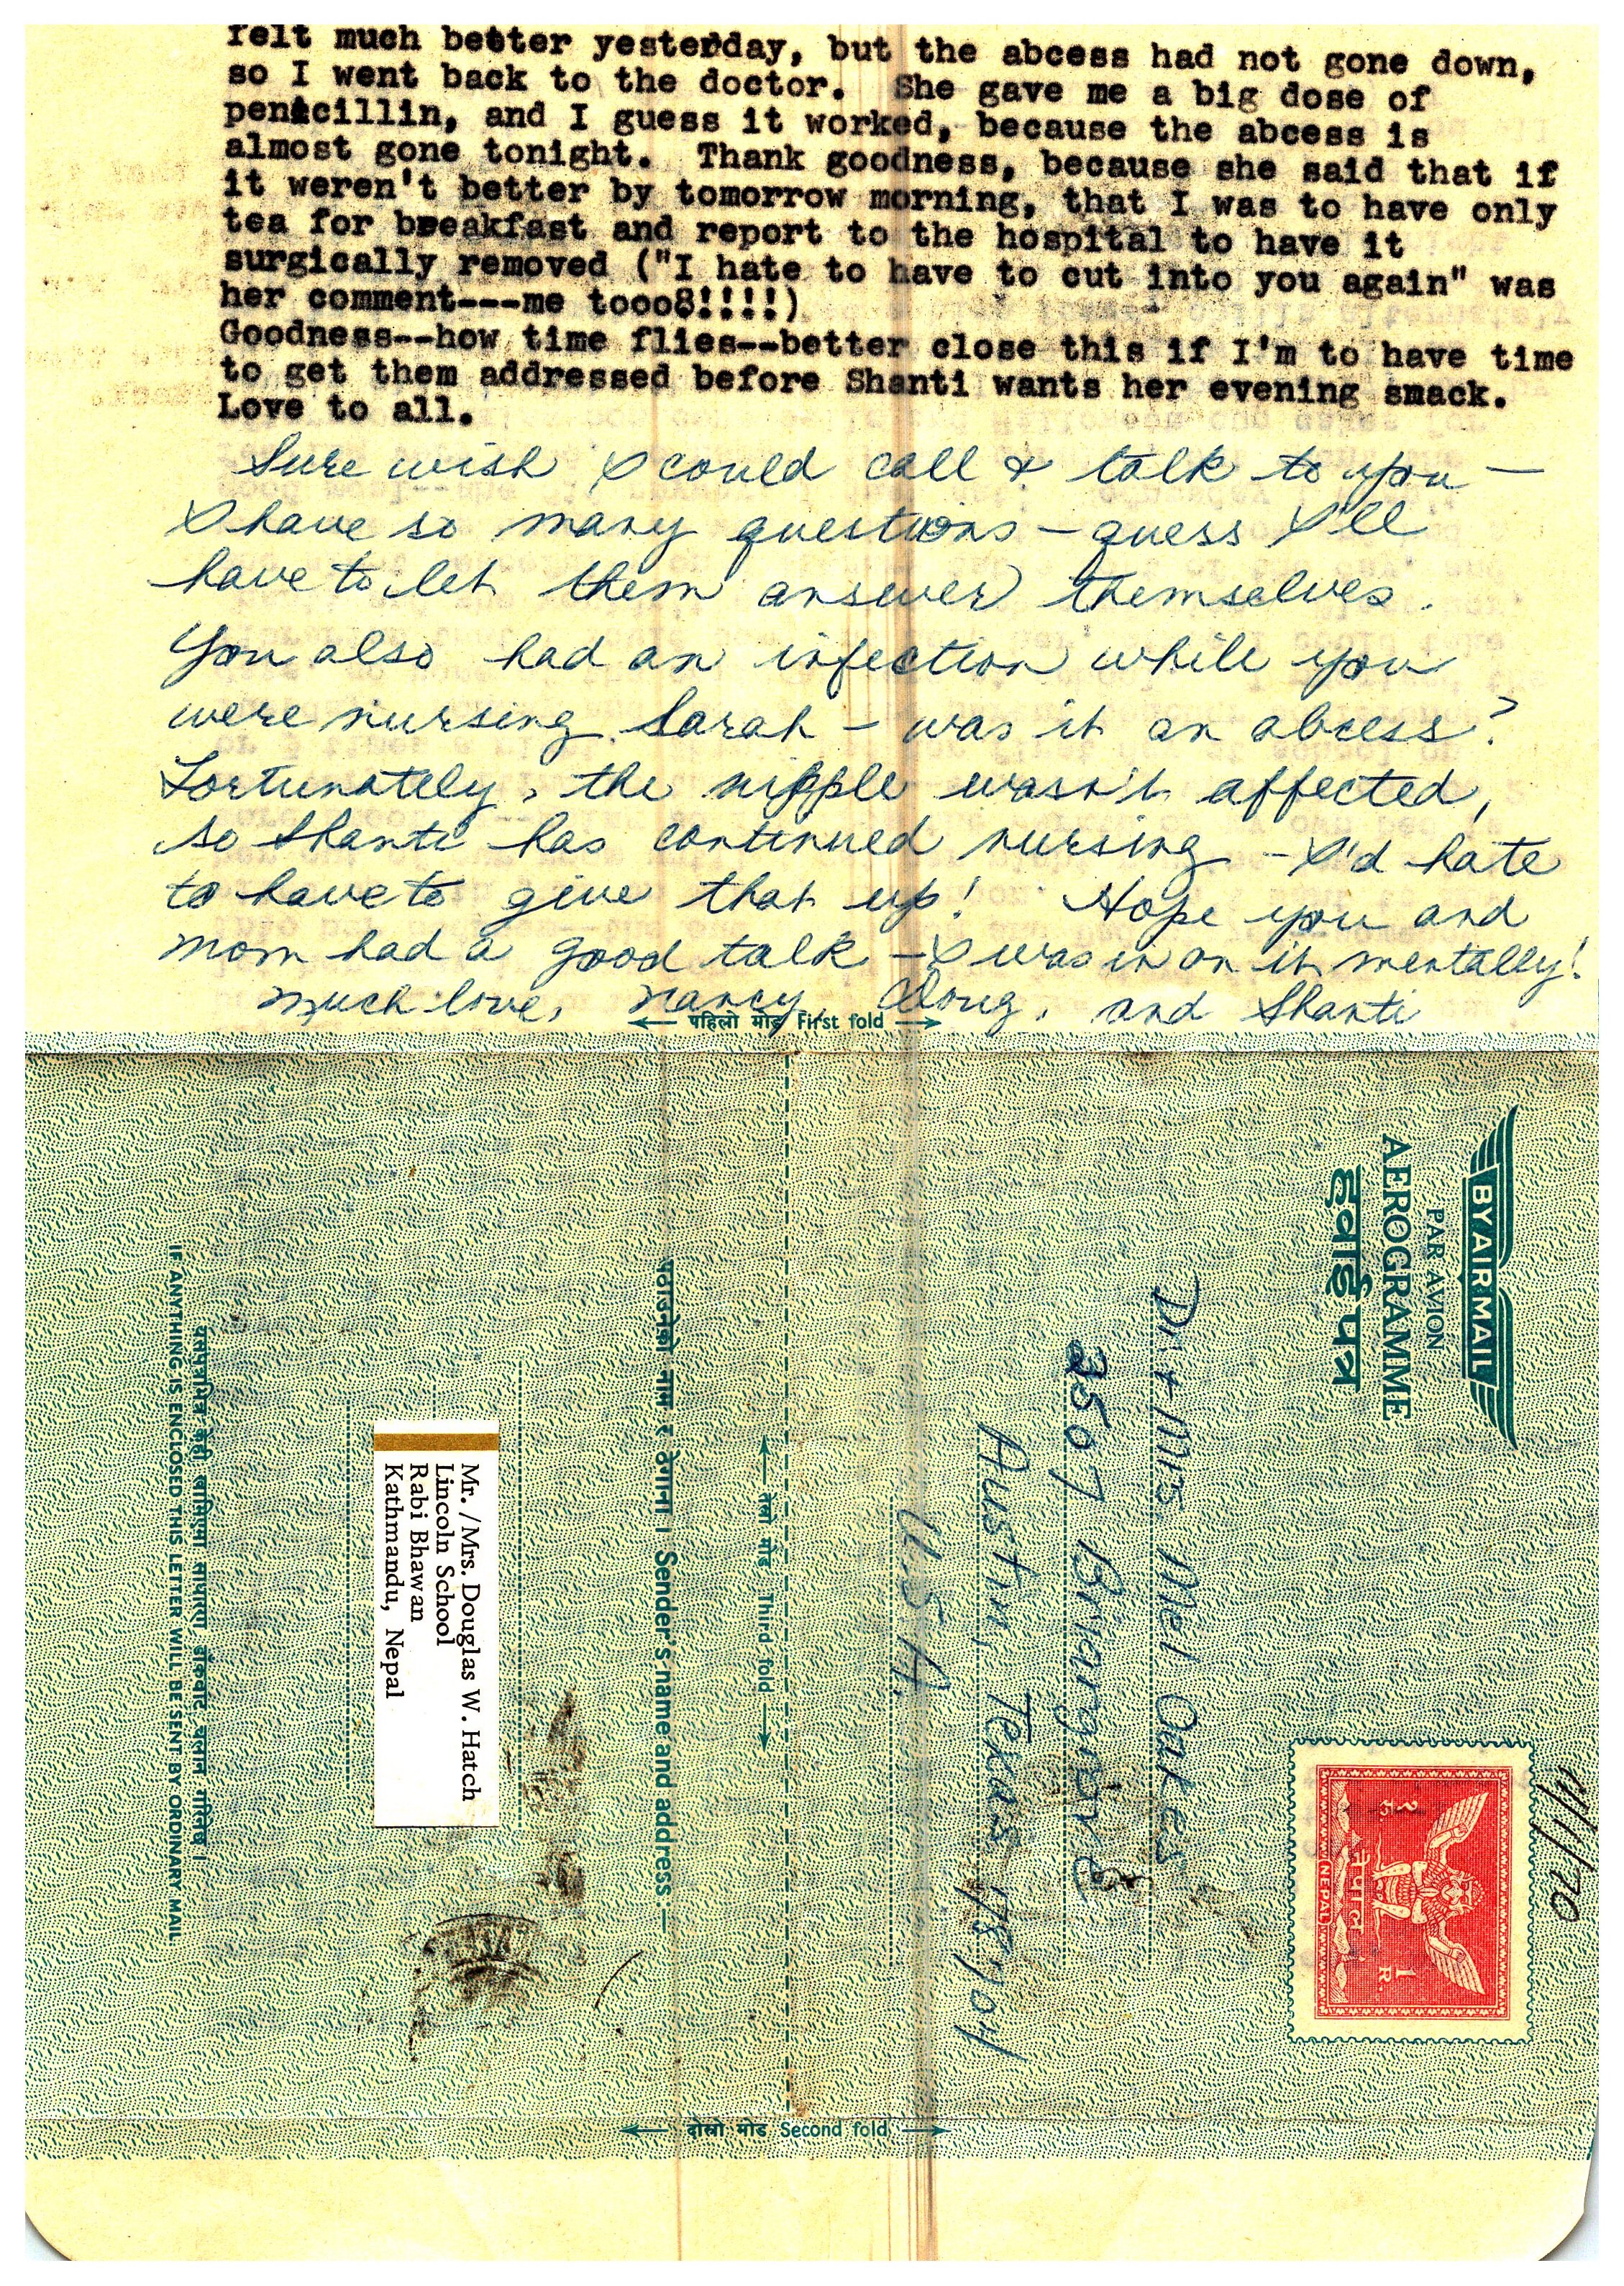 felt much better yesterday, but the abcess had not gone down,
so I went back to the doctor. She gave me a big dose of
penicillin, and I guess it worked, because the abcess is
almost gone tonight. Thank goodness, because she said that if
it weren't better by tomorrow morning, that I was to have only
tea for breakfast and report to the hospital to have it
surgically removed ("I hate to have to cut into you again" was
her comment---me tooo8!!!!)
Goodness--how time flies--better close this if I'm to have time
to get them addressed before Shanti wants her evening smack.
Love to all.
Sure wish I could call & talk to you —
I have so many questions — guess I'll
have to let them answer themselves.
You also had an infection while you
were nursing Sarah — was it an abcess?
Fortunately, the nipple wasn't affected,
so Shanti has continued nursing — I'd hate
to have to give that up! Hope you and
mom had a good talk — I was in on it mentally!
Much love, Nancy, Doug, and Shanti
पहिलो मोड First fold
BY AIR MAIL
PAR AVION
AEROGRAMME
हवाई पत्र
11/1/70
नेपाल
NEPAL
1 R.
१ रु.
Dr + Mrs Mel Oakes
3507 Briargrove
Austin, Texas 78704
U.S.A.
तेस्रो मोड Third fold
पठाउनेको नाम र ठेगाना । Sender's name and address:—
Mr. /Mrs. Douglas W. Hatch
Lincoln School
Rabi Bhawan
Kathmandu, Nepal
यसपत्रभित्र केही राखिएमा साधारण डाँकबाट चलान गरिनेछ ।
IF ANYTHING IS ENCLOSED THIS LETTER WILL BE SENT BY ORDINARY MAIL
दोस्रो मोड Second fold